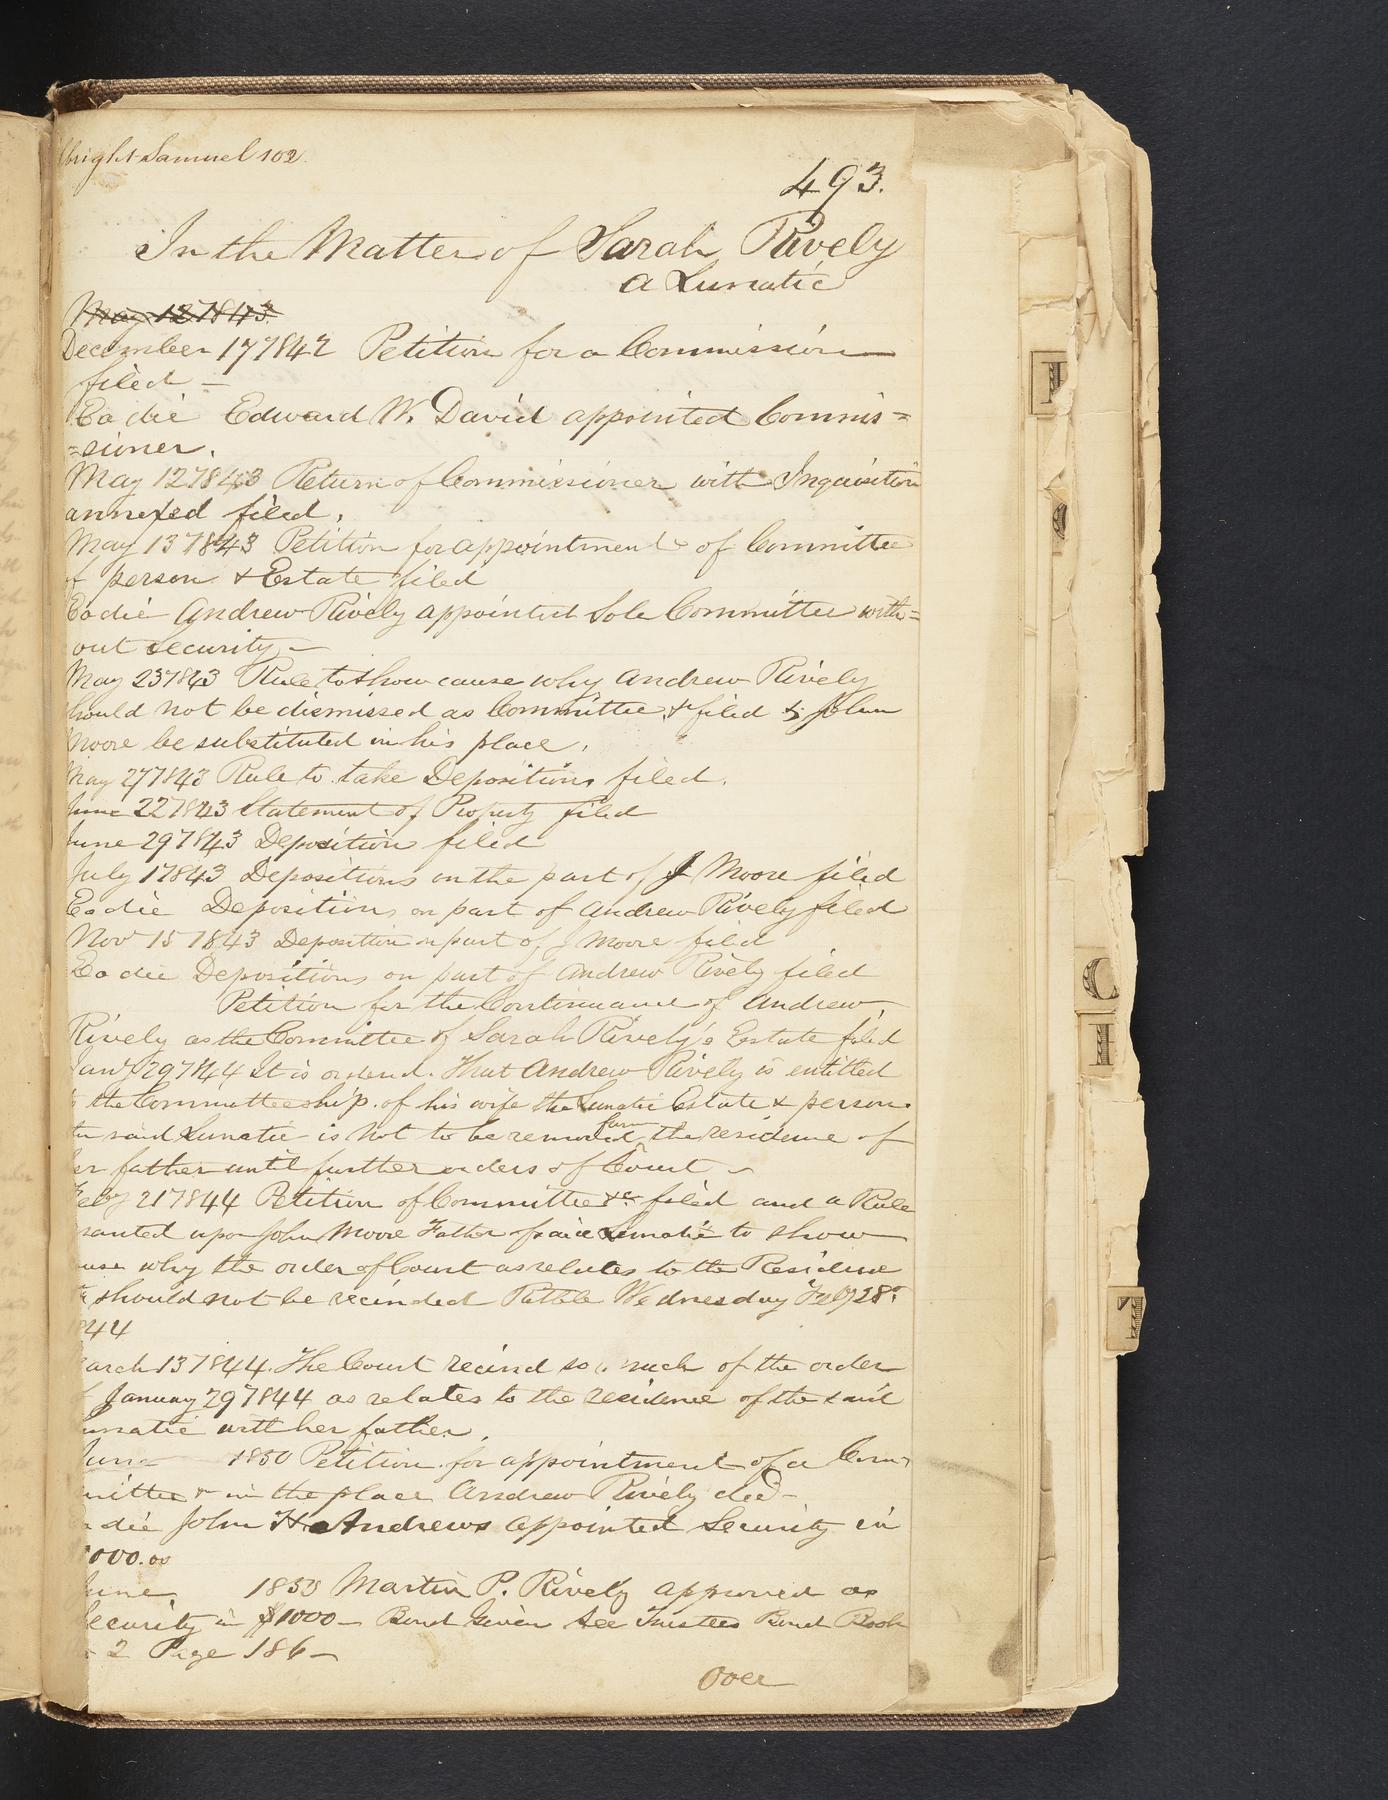 bright Samuel 102
493.
In the Matter of Sarah Rively
a Lunatic
May 12 1843
December 17 1842 Petition for a Commission
filed —
Eo die Edward W. David appointed Commis=
=sioner.
May 12 1843 Return of Commissioner with Inquisition
annexed filed.
May 13 1843 Petition for appointment of Committee
of person & Estate filed
Eo die Andrew Rively appointed Sole Committee with=
out security —
May 23 1843 Rule to show cause why Andrew Rively
should not be dismissed as Committee &c filed & John
Moore be substituted in his place.
May 27 1843 Rule to take Depositions filed.
June 22 1843 Statement of Property filed
June 29 1843 Deposition filed
July 1 1843 Depositions on the part of J Moore filed
Eo die Depositions on part of Andrew Rively filed
Nov 15 1843 Deposition on part of J Moore filed
Eo die Depositions on part of Andrew Rively filed
Petition for the Continuance of Andrew
Rively as the Committee of Sarah Rively's Estate filed
Jany 29 1844 It is ordered. That Andrew Rively is entitled
the Committeeship of his wife the Lunatic Estate & person
said Lunatic is not to be removed from the residence of
her father until further orders of Court —
Feby 21 1844 Petition of Committee &c filed and a Rule
ranted upon John Moore Father of said Lunatic to show
use why the order of Court as relates to the Residence
should not be recinded Rettble Wednesday Feby 28th
844
arch 13 1844. The Court recind so much of the order
January 29 1844 as relates to the residence of the said
unatic with her father.
June 1850 Petition for appointment of a Com
mittee in the place Andrew Rively decd —
o die John H. Andrews appointed Security in
1000.00
June 1850 Martin P. Rively approved as
Security in $1000 — Bond Given See Trustees Bond Book
2 Page 186 —
Over
C
I
T